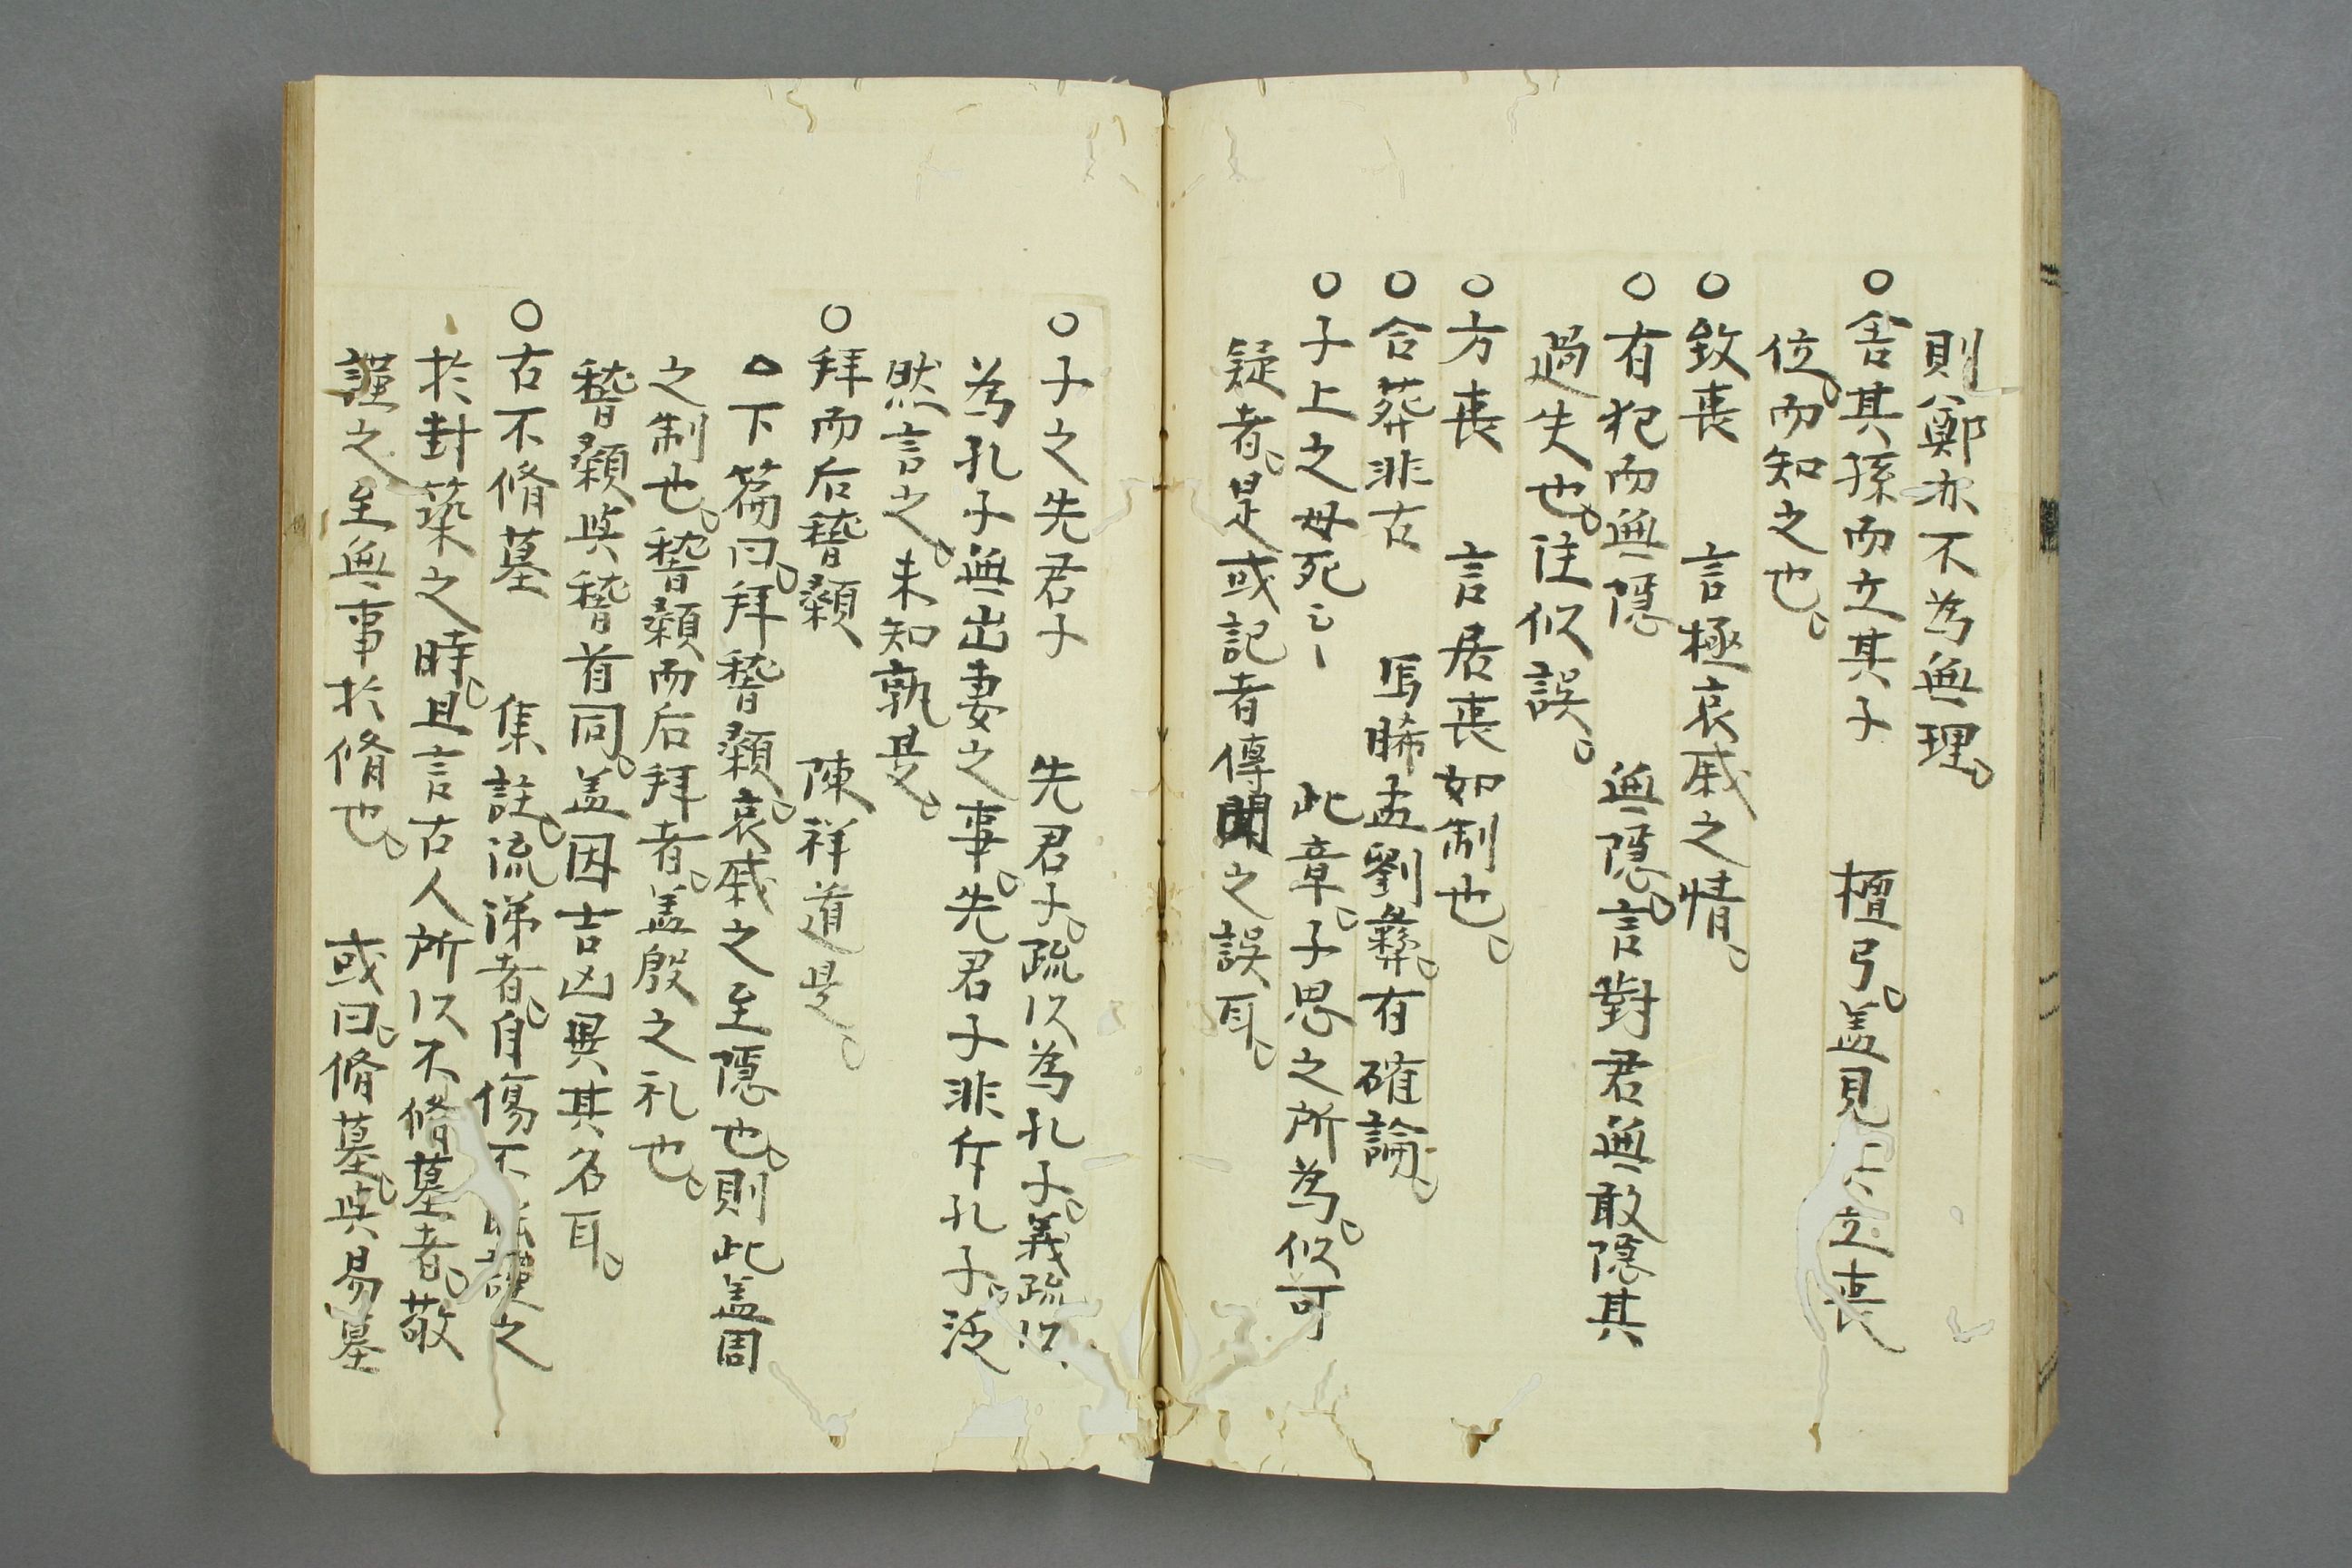 則鄭亦不為無理。
○舍其孫而立其子　檀弓。盖見立喪
位而知之也。
○致喪　言極哀戚之情。
○有犯而無隱　無隱。言對君無敢隱其
過失也。注似誤。
○方喪　言居喪如制也。
○合葬非古　馬晞孟劉彝。有確論。
○子上之母死云〻　此章。子思之所為。似可
疑者。是或記者傳聞之誤耳。
○子之先君子　先君子。疏以為孔子。義疏以
為孔子無出妻之事。先君子非斥孔子。泛
然言之。未知孰是。
○拜而后稽顙　陳祥道是。
△下篇曰。拜稽顙。哀戚之至隱也。則此盖周
之制也。稽顙而后拜者。盖殷之礼也。
稽顙與稽首同。盖因吉凶異其名耳。
○古不脩墓　集註。流涕者。自傷不能謹之
於封築之時。且言古人所以不脩墓者。敬
謹之至無事於脩也。　或曰。脩墓。與易墓